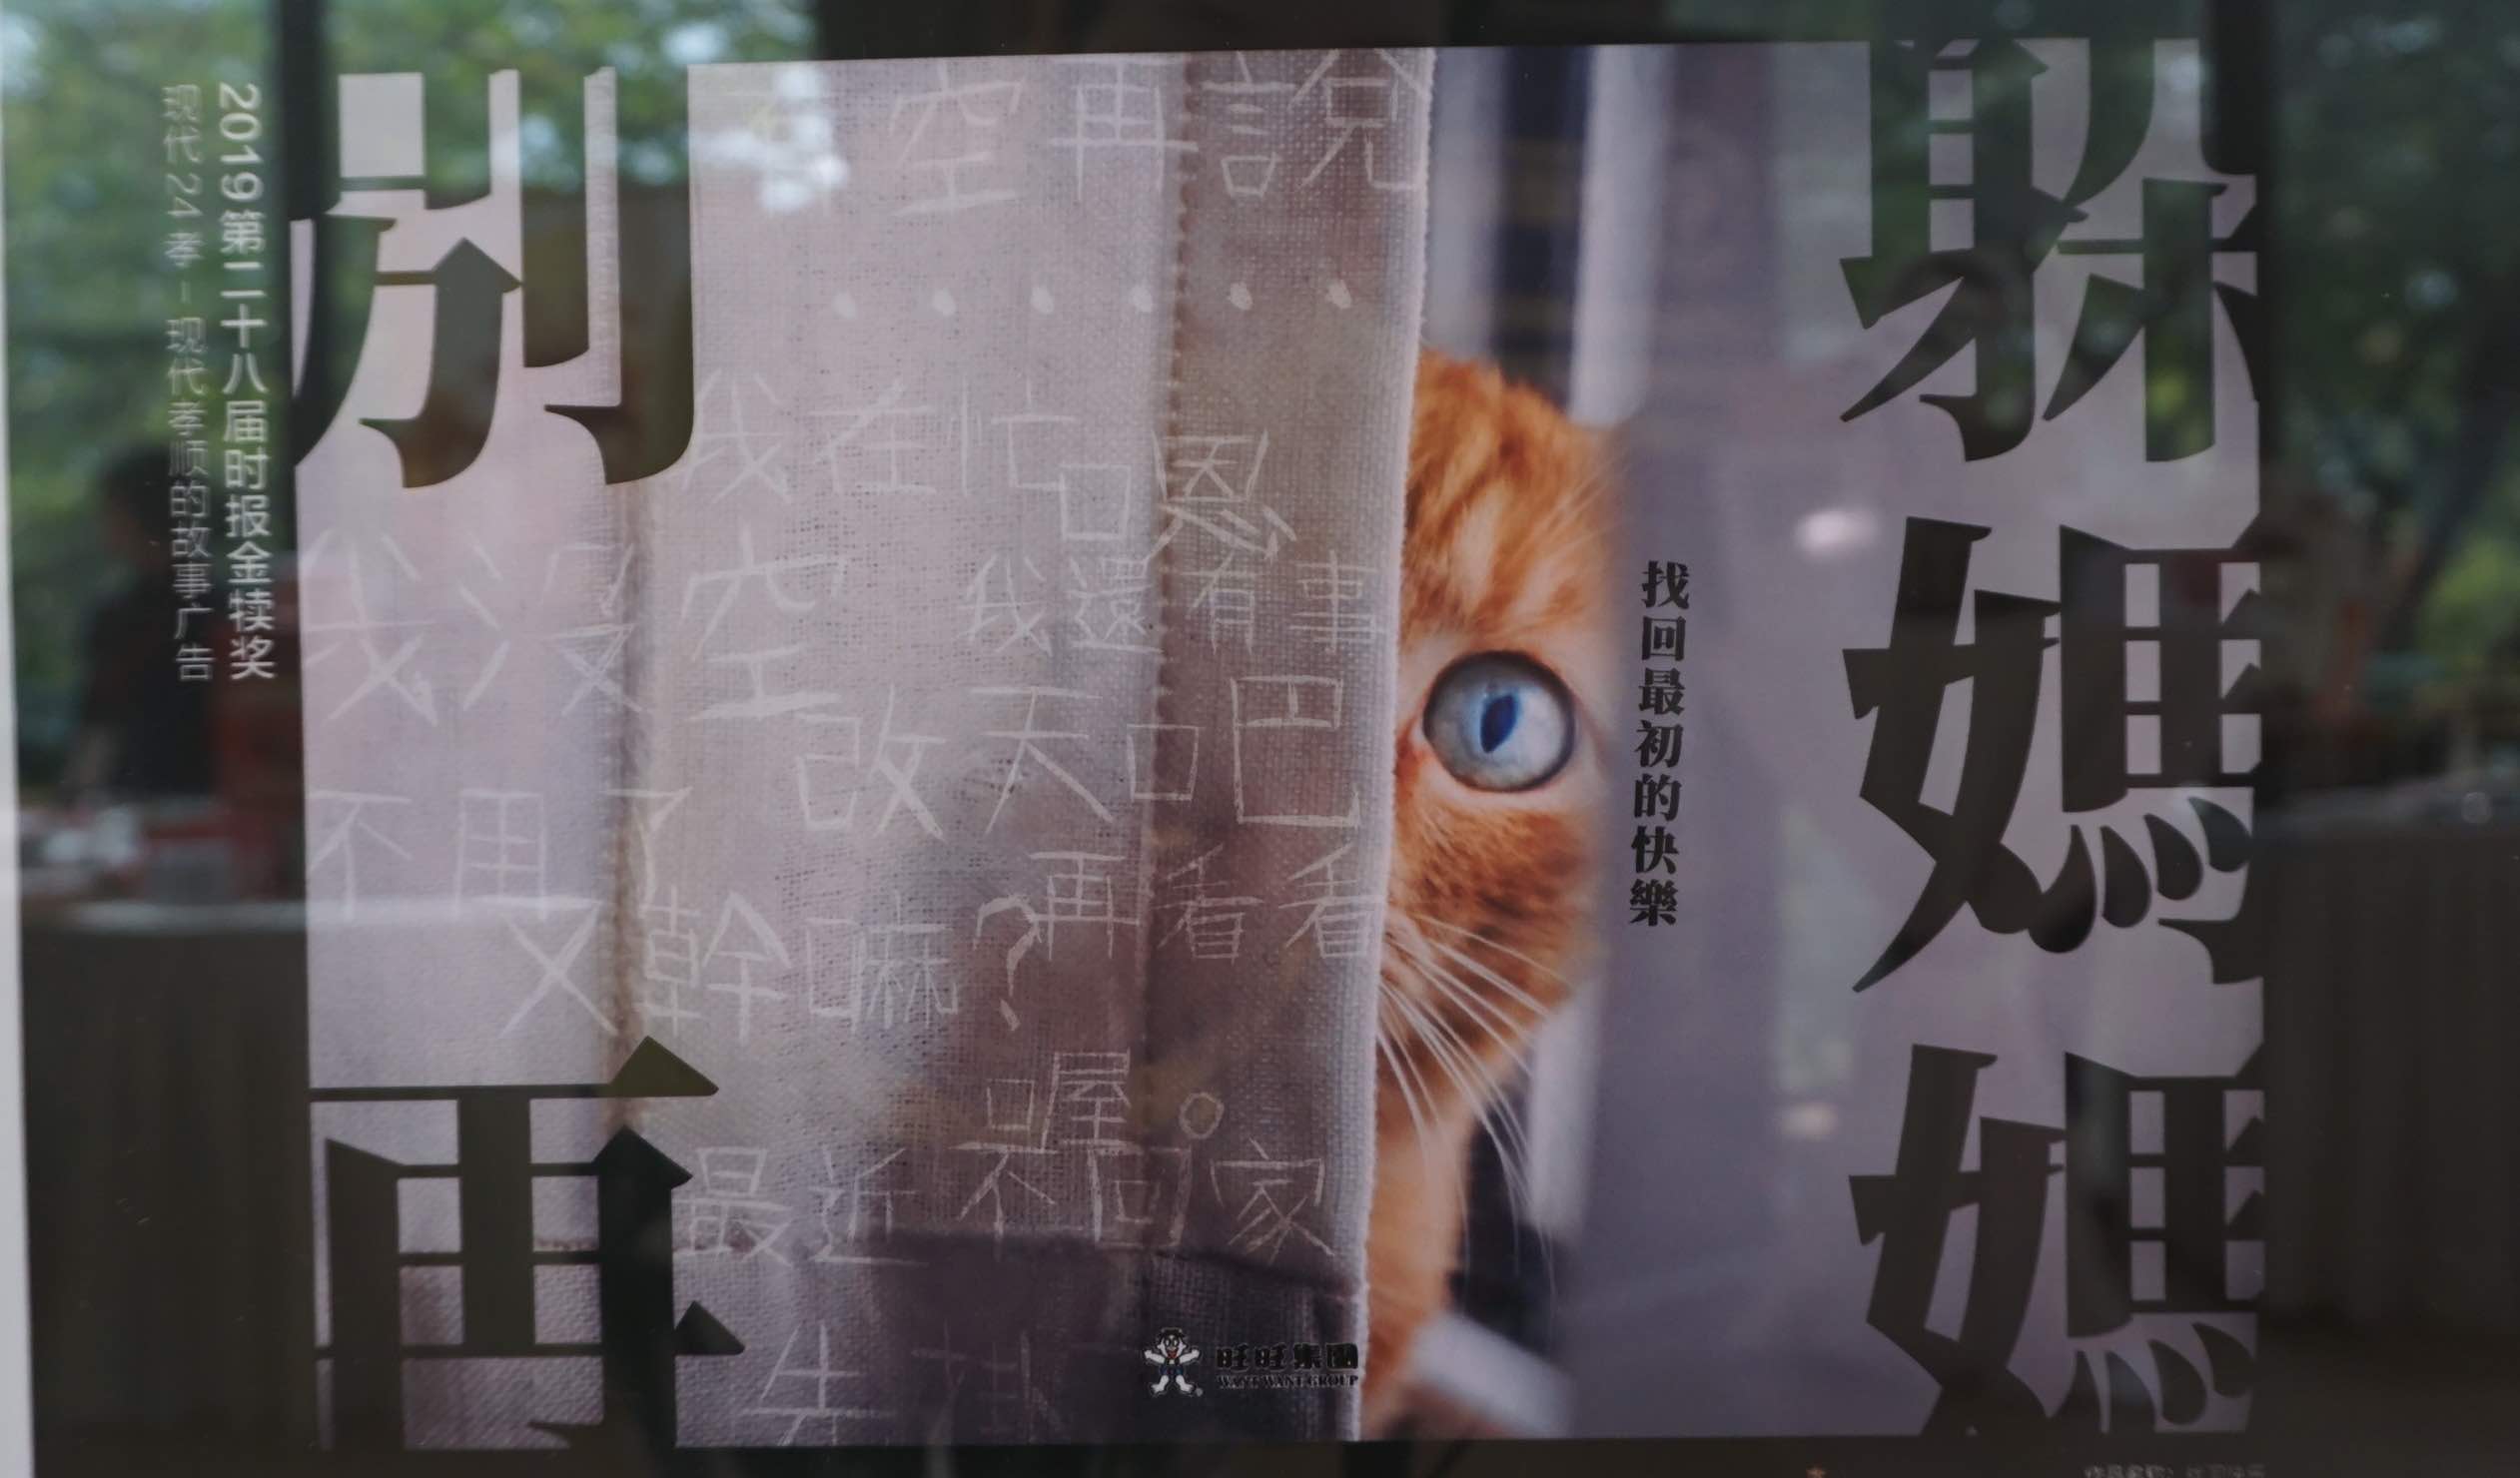 2019第二十八届时报金犊奖
现代24孝-现代孝顺的故事广告
別再
躲媽媽
找回最初的快樂
空再說
......
我在忙
嗯
我沒空
我還有事
改天吧
不用了
再看看
又幹嘛?
喔。
最近不回家
先掛
旺旺集團
WANT WANT GROUP